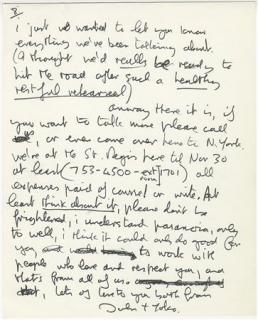 3.
i just we wanted to let you know
everything we've been talking about.
(9 thought we'd really be ready to
hit the road after such a healthy
restful rehearsal)
anyway Here it is, if
you want to talk more please call
or even come over here to N. York.
we're at the St. Regis here til Nov 30
at least (753-4500 - ext room 1701) all
expenses paid of course! or write. At
least think about it, please don't be
frightened, i understand paranoia, only
to well, i think it could only do good for
you, to work with
people who love and respect you, and
that's from all of us
lots of love to you both from
John + Yoko.